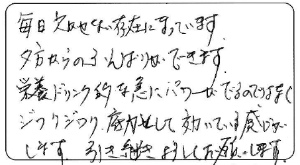 毎日欠かせない存在になっています。
夕方からのふんばりができます。
栄養ドリンク的な急にパワーがでるのではなく
ジワジワジワ、底力として効いている感じが
します。引き続きよろしくお願いします